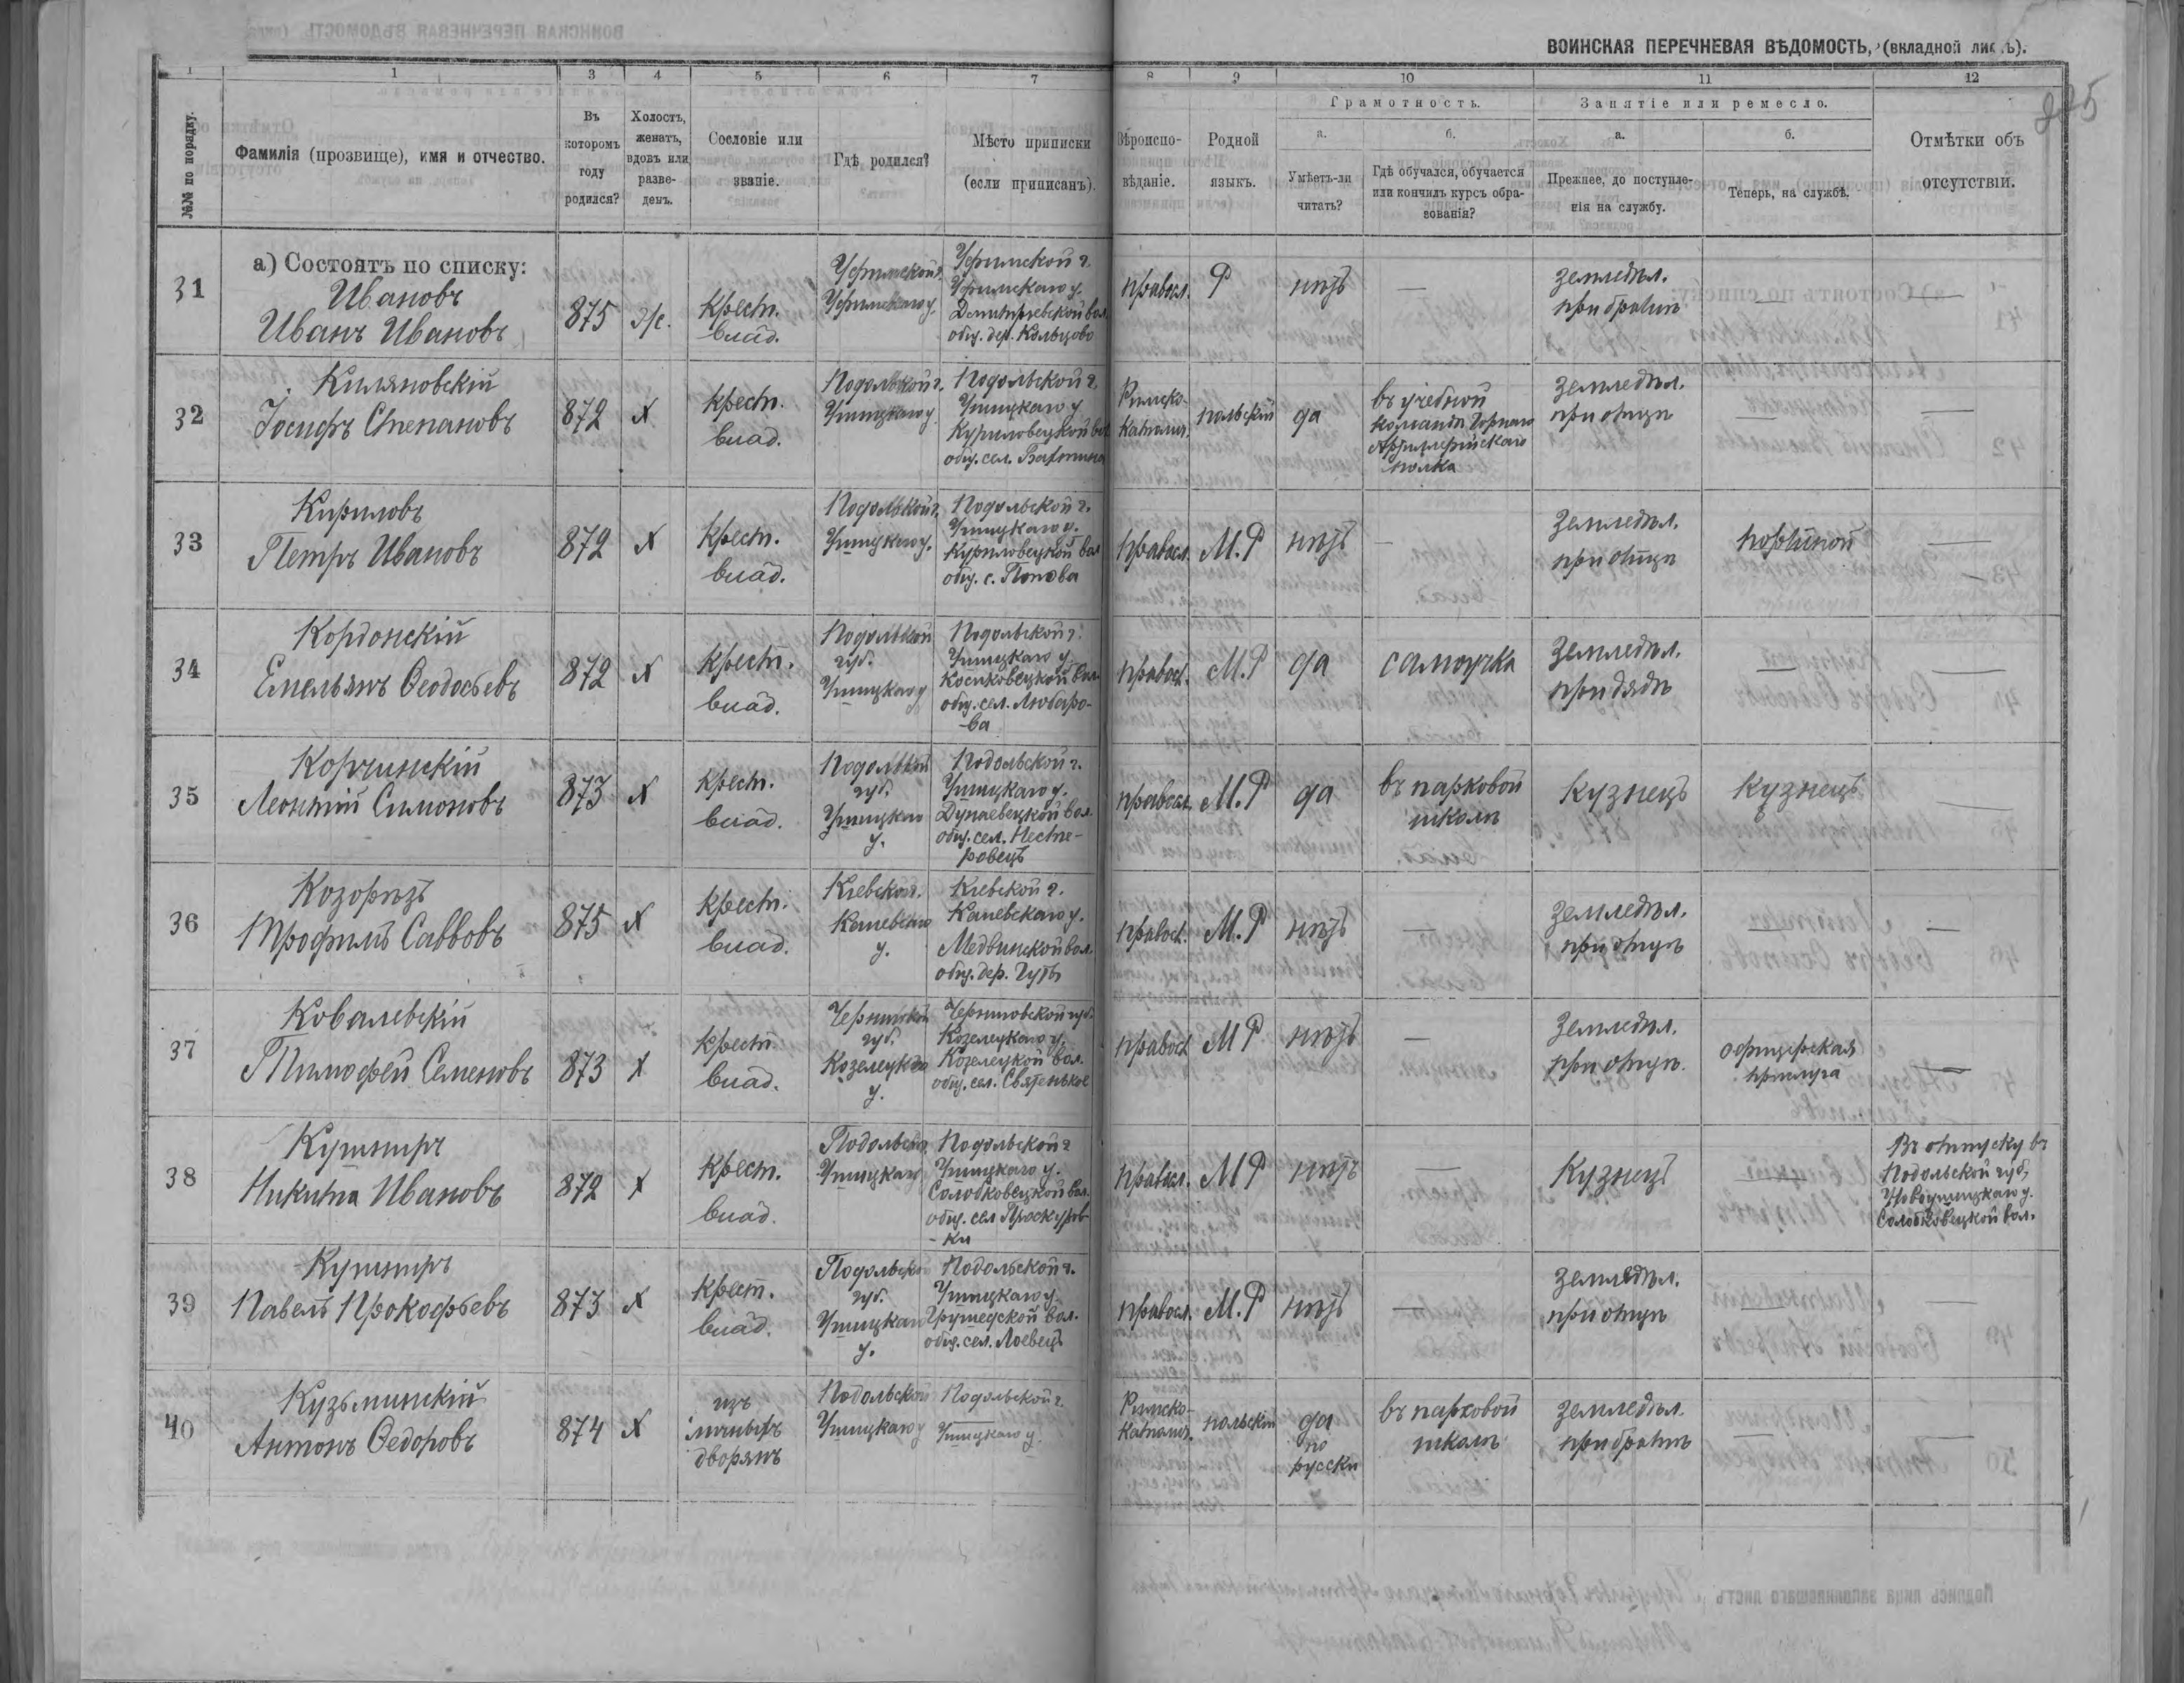 ВОИНСКАЯ ПЕРЕЧНЕВАЯ ВѢДОМОСТЬ, (вкладной листъ).
1 1 3 4 5 6 7 8 9 10 11 12
№№ по порядку.
Фамилія (прозвище), имя и отчество.
Въ которомъ году родился?
Холостъ, женатъ, вдовъ или разве-денъ.
Сословіе или званіе.
Гдѣ родился?
Мѣсто приписки (если приписанъ).
Вѣроиспо-вѣданіе.
Родной языкъ.
Грамотность.
а. Умѣетъ-ли читать?
б. Гдѣ обучался, обучается или кончилъ курсъ обра-зованія?
Занятіе или ремесло.
а. Прежнее, до поступле-нія на службу.
б. Теперь, на службѣ.
Отмѣтки объ отсутствіи.
а) Состоятъ по списку:
31 Ивановъ Иванъ Ивановъ 875 ж. крест. влад. Уфимской г. Уфимскаго у. Уфимской г. Уфимскаго у. Дмитріевской вол. общ. дер. Кольцово правосл. Р нѣтъ — земледѣл. при братѣ — —
32 Киляновскій Іосифъ Степановъ 872 Х крест. влад. Подольской г. Ушицкаго у. Подольской г. Ушицкаго у. Куриловецкой вол. общ. сел. Римско-Католич. польскій да въ учебной командѣ Горнаго Артиллерійскаго полка земледѣл. при отцѣ — —
33 Кириловъ Петръ Ивановъ 872 Х крест. влад. Подольской г. Ушицкаго у. Подольской г. Ушицкаго у. Куриловецкой вол. общ. с. Попова правосл. М.Р нѣтъ — земледѣл. при отцѣ портной —
34 Кордонскій Емельянъ Ѳеодосьевъ 872 Х крест. влад. Подольской губ. Ушицкаго у Подольской г. Ушицкаго у Косиковецкой вол. общ. сел. Любаро-ва правосл. М.Р да самоучка земледѣл. при дядѣ — —
35 Корчинскій Леонтій Симоновъ 873 Х крест. влад. Подольской губ. Ушицкаго у. Подольской г. Ушицкаго у. Дунаевецкой вол. общ. сел. Нестте-ровецъ правосл. М.Р да въ парковой школѣ Кузнецъ Кузнецъ —
36 Козорѣзъ Трофимъ Саввовъ 875 Х крест. влад. Кіевской г. Каневскаго у. Кіевской г. Каневскаго у. Медвинской вол. общ. дер. Гута правосл. М.Р нѣтъ — земледѣл. при отцѣ — —
37 Ковалевскій Тимофей Семеновъ 873 Х крест. влад. Черниговской губ. Козелецкаго у. Черниговской губ. Козелецкаго у. Козелецкой вол. общ. сел. правосл. М Р нѣтъ — земледѣл. при отцѣ офицерская прислуга —
38 Кушниръ Никита Ивановъ 872 Х крест. влад. Подольской Ушицкаго Подольской г. Ушицкаго у. Солобковецкой вол. общ. сел Проскуров-ки правосл. М Р нѣтъ — Кузнецъ — Въ отпуску въ Подольской губ, Новоушицкаго у. Солобковецкой вол.
39 Кушниръ Павелъ Прокофьевъ 873 Х крест. влад. Подольской губ. Ушицкаго у. Подольской г. Ушицкаго у. общ. сел. Лоевецъ правосл. М.Р нѣтъ — земледѣл. при отцѣ — —
40 Кузьминскій Антонъ Ѳедоровъ 874 Х изъ личныхъ дворянъ Подольской Ушицкаго у Подольской г. Ушицкаго у. Римско-Католич. польскій да по русски въ парковой школѣ земледѣл. при братѣ — —